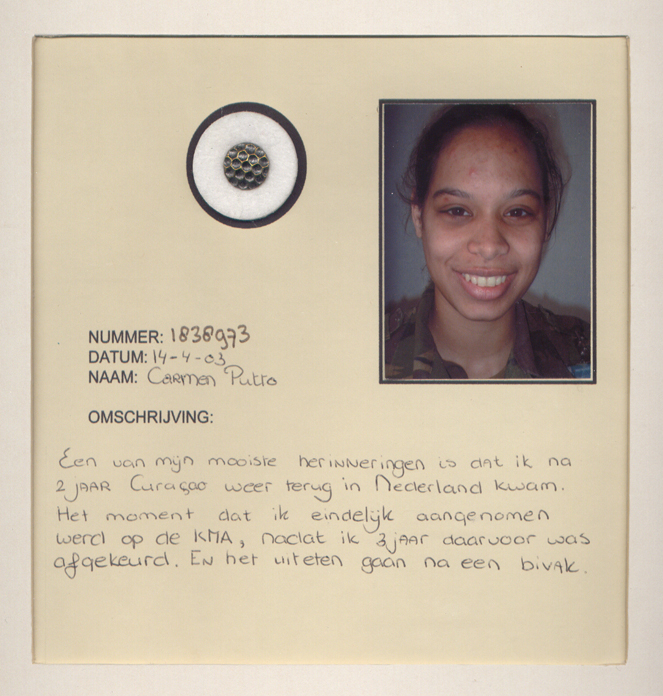 NUMMER: 1838973
DATUM: 14-4-03
NAAM: Carmen Putto
OMSCHRIJVING:
Een van mijn mooiste herinneringen is dat ik na
2 jaar Curaçao weer terug in Nederland kwam.
Het moment dat ik eindelijk aangenomen
werd op de KMA, nadat ik 3 jaar daarvoor was
afgekeurd. En het uiteten gaan na een bivak.